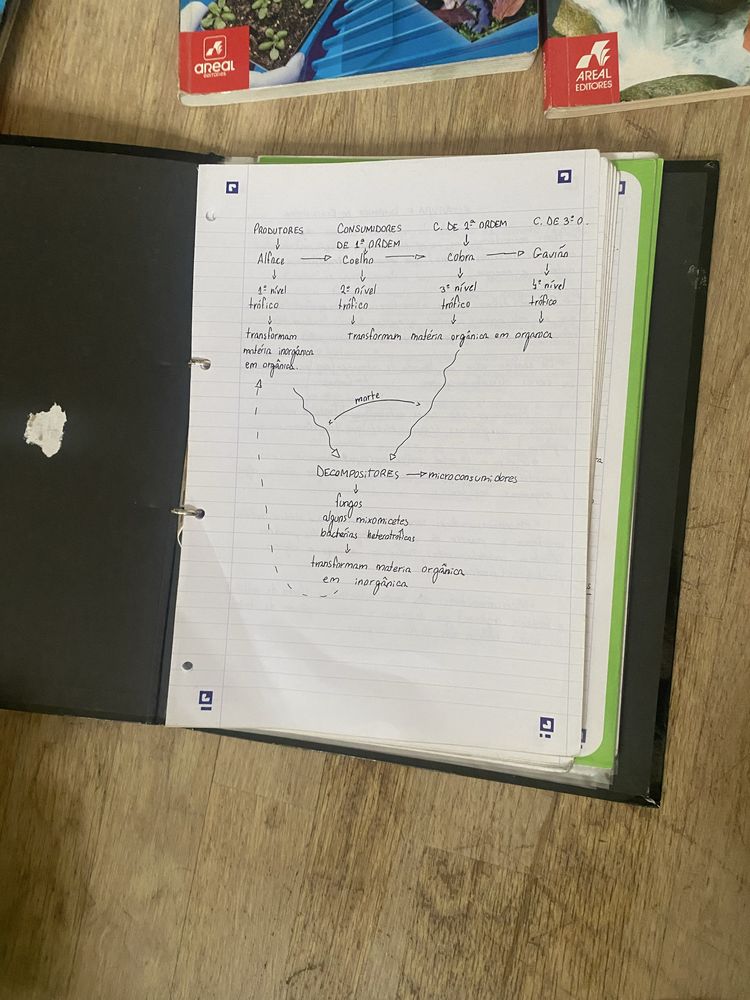 AREAL
EDITORES
AREAL
EDITORES
PRODUTORES
CONSUMIDORES
DE 1ª ORDEM
C. DE 2ª ORDEM
C. DE 3ª O.
Alface
Coelho
cobra
Gavião
1º nível
trófico
2º nível
trófico
3º nível
trófico
4º nível
trófico
transformam
matéria inorgânica
em orgânica.
transformam matéria orgânica em organica
morte
DECOMPOSITORES
microconsumidores
fungos
alguns mixomicetes
bactérias heterotróficas
transformam materia orgânica
em inorgânica